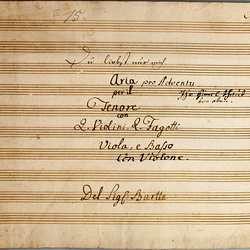 75.
Du liebst mir mich
Aria pro Adventu
per il
Tenore
con
2. Violini. 2. Fagotti
Viola, e Basso
con Violone.
Del Sigr Bartta